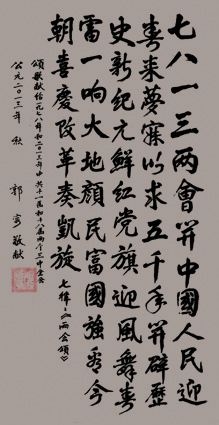 七八一三兩會開中國人民迎
春来夢寐以求五千年開辟歷
史新纪元鮮红党旗迎風舞春
雷一响大地顏民富國強看今
朝喜慶改革奏凱旋
七律《兩会頌》
頌歌献给一九七八年和二〇一三年中共十一届和十八届两个三中全会
公元二〇一三年 秋
郭 敬献